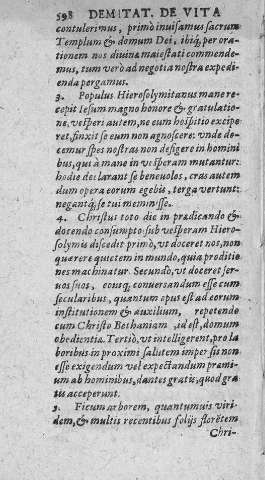 598 DEMITAT. DE VITA
contulerimus, primò inuisamus sacrum
Templum & domum Dei, ibiq; per ora-
tionem nos diuinæ maiestati commende-
mus, tum verò ad negotia nostra expedi-
enda pergamus.
3. Populus Hierosolymitanus mane re-
cepit Iesum magno honore & gratulatio-
ne. vesperi autem, ne eum hospitio excipe-
ret, finxit se eum non agnoscere: vnde do-
cemur spes nostras non desigere in homini
bus, qui à mane in vesperam mutantur:
hodie declarant se beneuolos, cras autem
dum opera eorum egebis, terga vertunt:
negantq; se tui meminisse.
4. Christus toto die in prædicando &
docendo consumpto sub vesperam Hiero-
solymis discedit primò, vt doceret nos, non
quærere quietem in mundo, quia proditio
nes machinatur. Secundò, vt doceret ser-
uos suos, eousq; conuersandum esse cum
secularibus, quantum opus est ad eorum
institutionem & auxilium, repetendo
cum Christo Bethaniam, id est, domum
obedientiæ. Tertiò, vt intelligerent, pro la
boribus in proximi salutem impersis non
esse exigendum vel expectandum præmi-
um ab hominibus, dantes gratis, quod gra
tis acceperunt.
5. Ficum arborem, quantumuis viri-
dem, & multis recentibus folijs florētem
Chri-